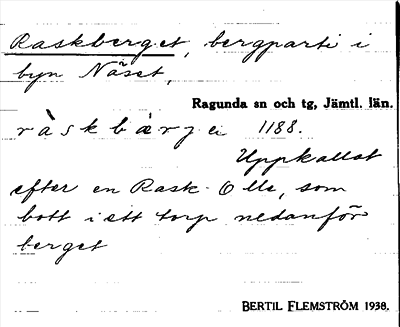 Raskberget, bergparti i
byn Näset,
Ragunda sn och tg, Jämtl. län.
ràskbàrjei 1188.
Uppkallat
efter en Rask-Olle, som
bott i ett torp nedanför
berget
BERTIL FLEMSTRÖM 1938.